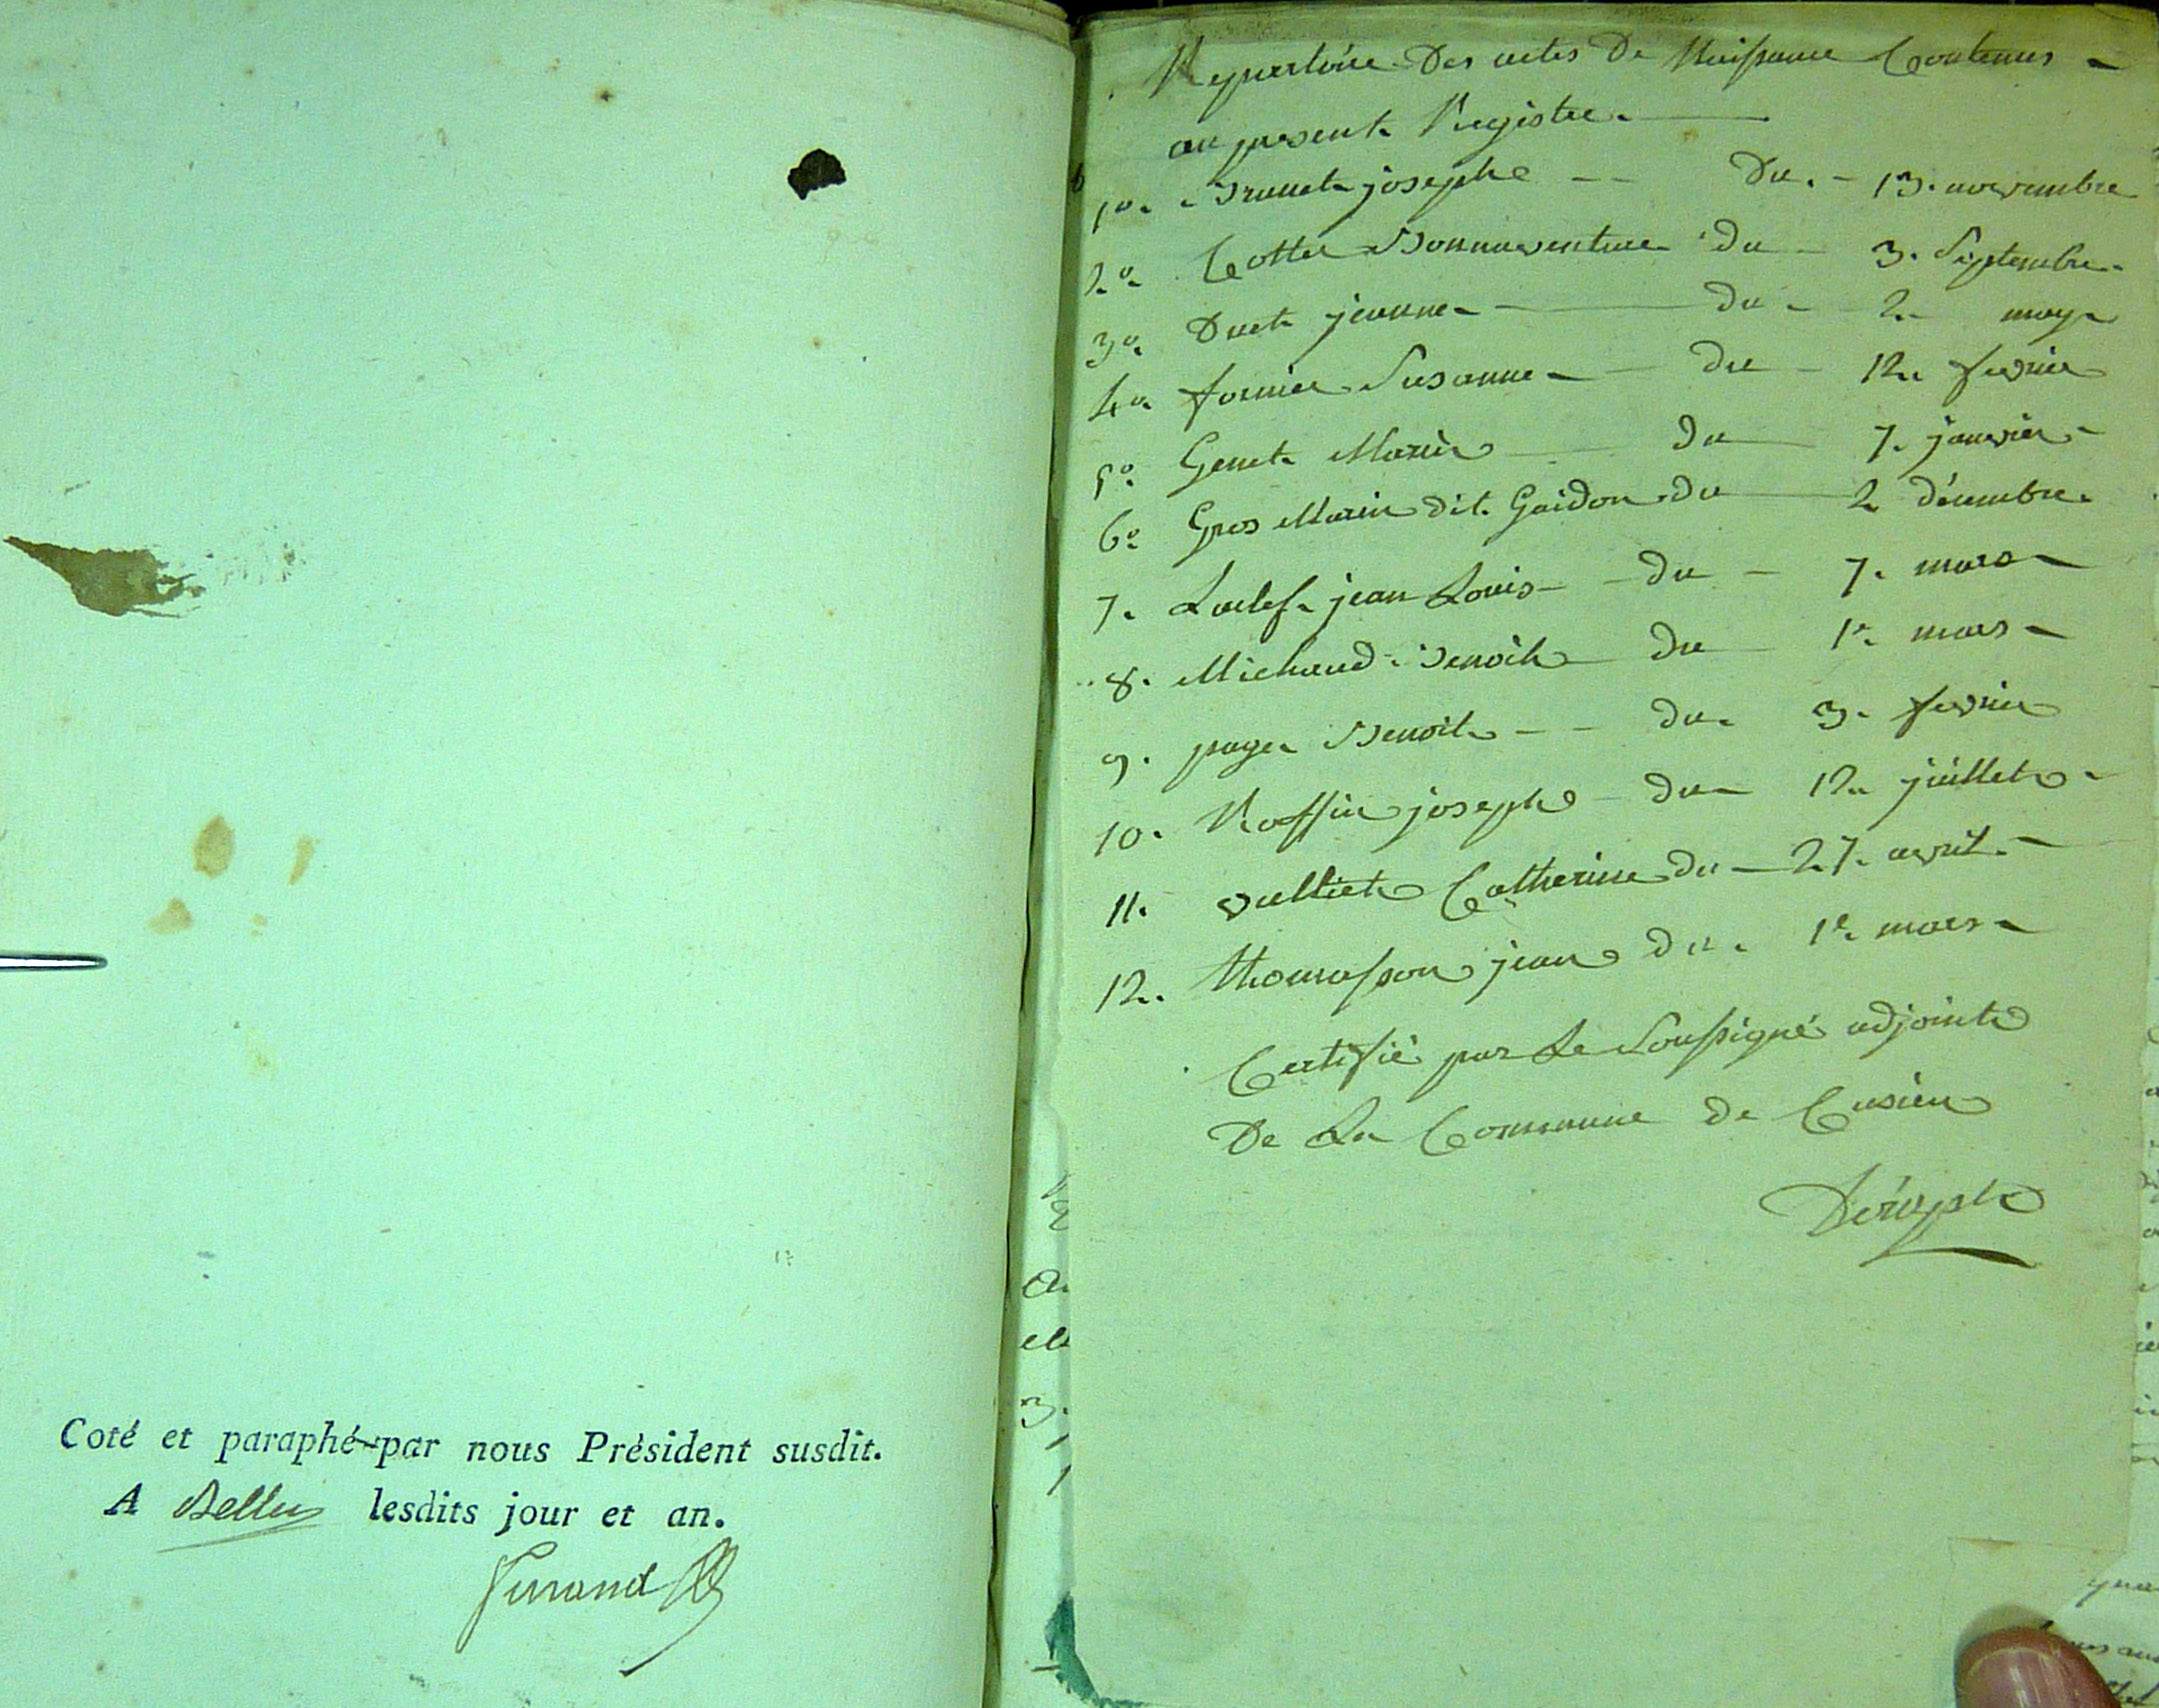 Coté et paraphé par nous Président susdit.
A Belley lesdits jour et an.
Repertoire Des actes De Naissance Contenus
au present Registre.
1o. Brunet josephe -- Du. - 13. novembre
2o. Cottes Bonnaventure du - 3. Septembre
3o. Duct jeanne - du - 2. may
4o. fornier Susanne - du - 12. fevrier
5o. Genet Marie du 7. janvier
6o Gros Marin dit Gaidon du 2 décembre
7. jean Louis - du - 7. mars
8. Michaud Benoit du 1er mars
9. page Benoit -- du 3. fevrier
10. Roffin joseph du 12. juillet
11. vulliet Catherine du 27. avril.
12. thomasson jean du 1er mars
Certifié par Le Soussigné adjoint
De La Commune de Cusieu